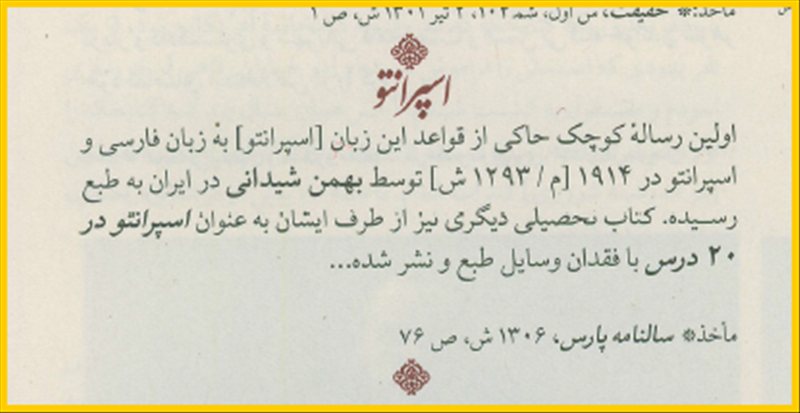 مأخذ:* حقیقت، س اول، شمـ ۱۰۲، ۲ تیر ۱۳۰۱ ش، ص ۱
اسپرانتو
اولین رسالهٔ کوچک حاکی از قواعد این زبان [اسپرانتو] به زبان فارسی و
اسپرانتو در ۱۹۱۴ [م / ۱۲۹۳ ش] توسط بهمن شیدانی در ایران به طبع
رسیده. کتاب تحصیلی دیگری نیز از طرف ایشان به عنوان اسپرانتو در
۲۰ درس با فقدان وسایل طبع و نشر شده...
مأخذ* سالنامه پارس، ۱۳۰۶ ش، ص ۷۶